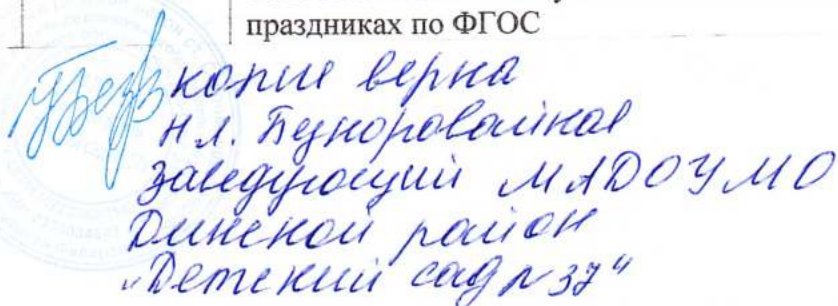 праздниках по ФГОС
копия верна
Н.А.
заведующий МАДОУ МО
Динской район
„Детский сад №37"